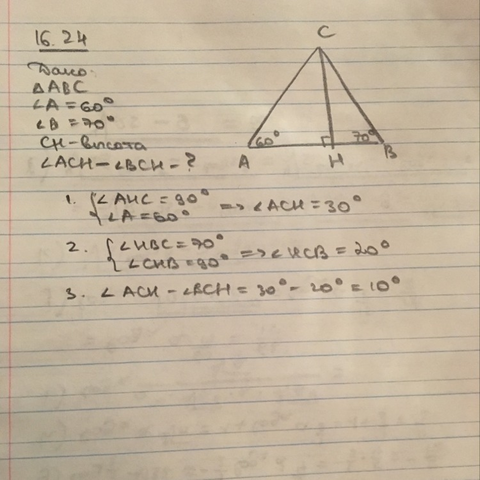 16.24
Дано:
△ABC
∠A = 60°
∠B = 70°
CH - высота
∠ACH - ∠BCH - ?
C
60°
70°
A
H
B
1. { ∠AHC = 90°
∠A = 60° => ∠ACH = 30°
2. { ∠HBC = 70°
∠CHB = 90° => ∠HCB = 20°
3. ∠ACH - ∠BCH = 30° - 20° = 10°